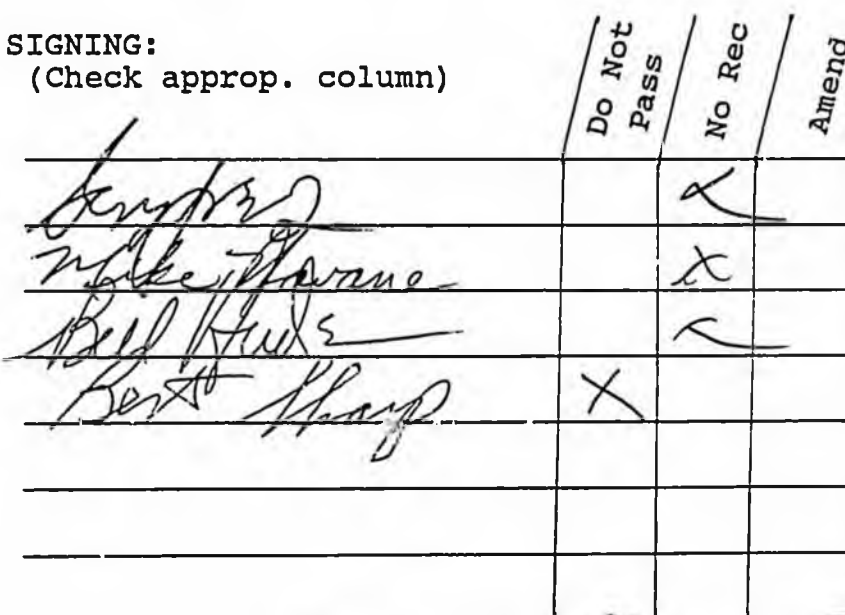 SIGNING:
(Check approp. column)
Do Not
Pass
No Rec
Amend
Mike
X
Bill
Bert Sharp X